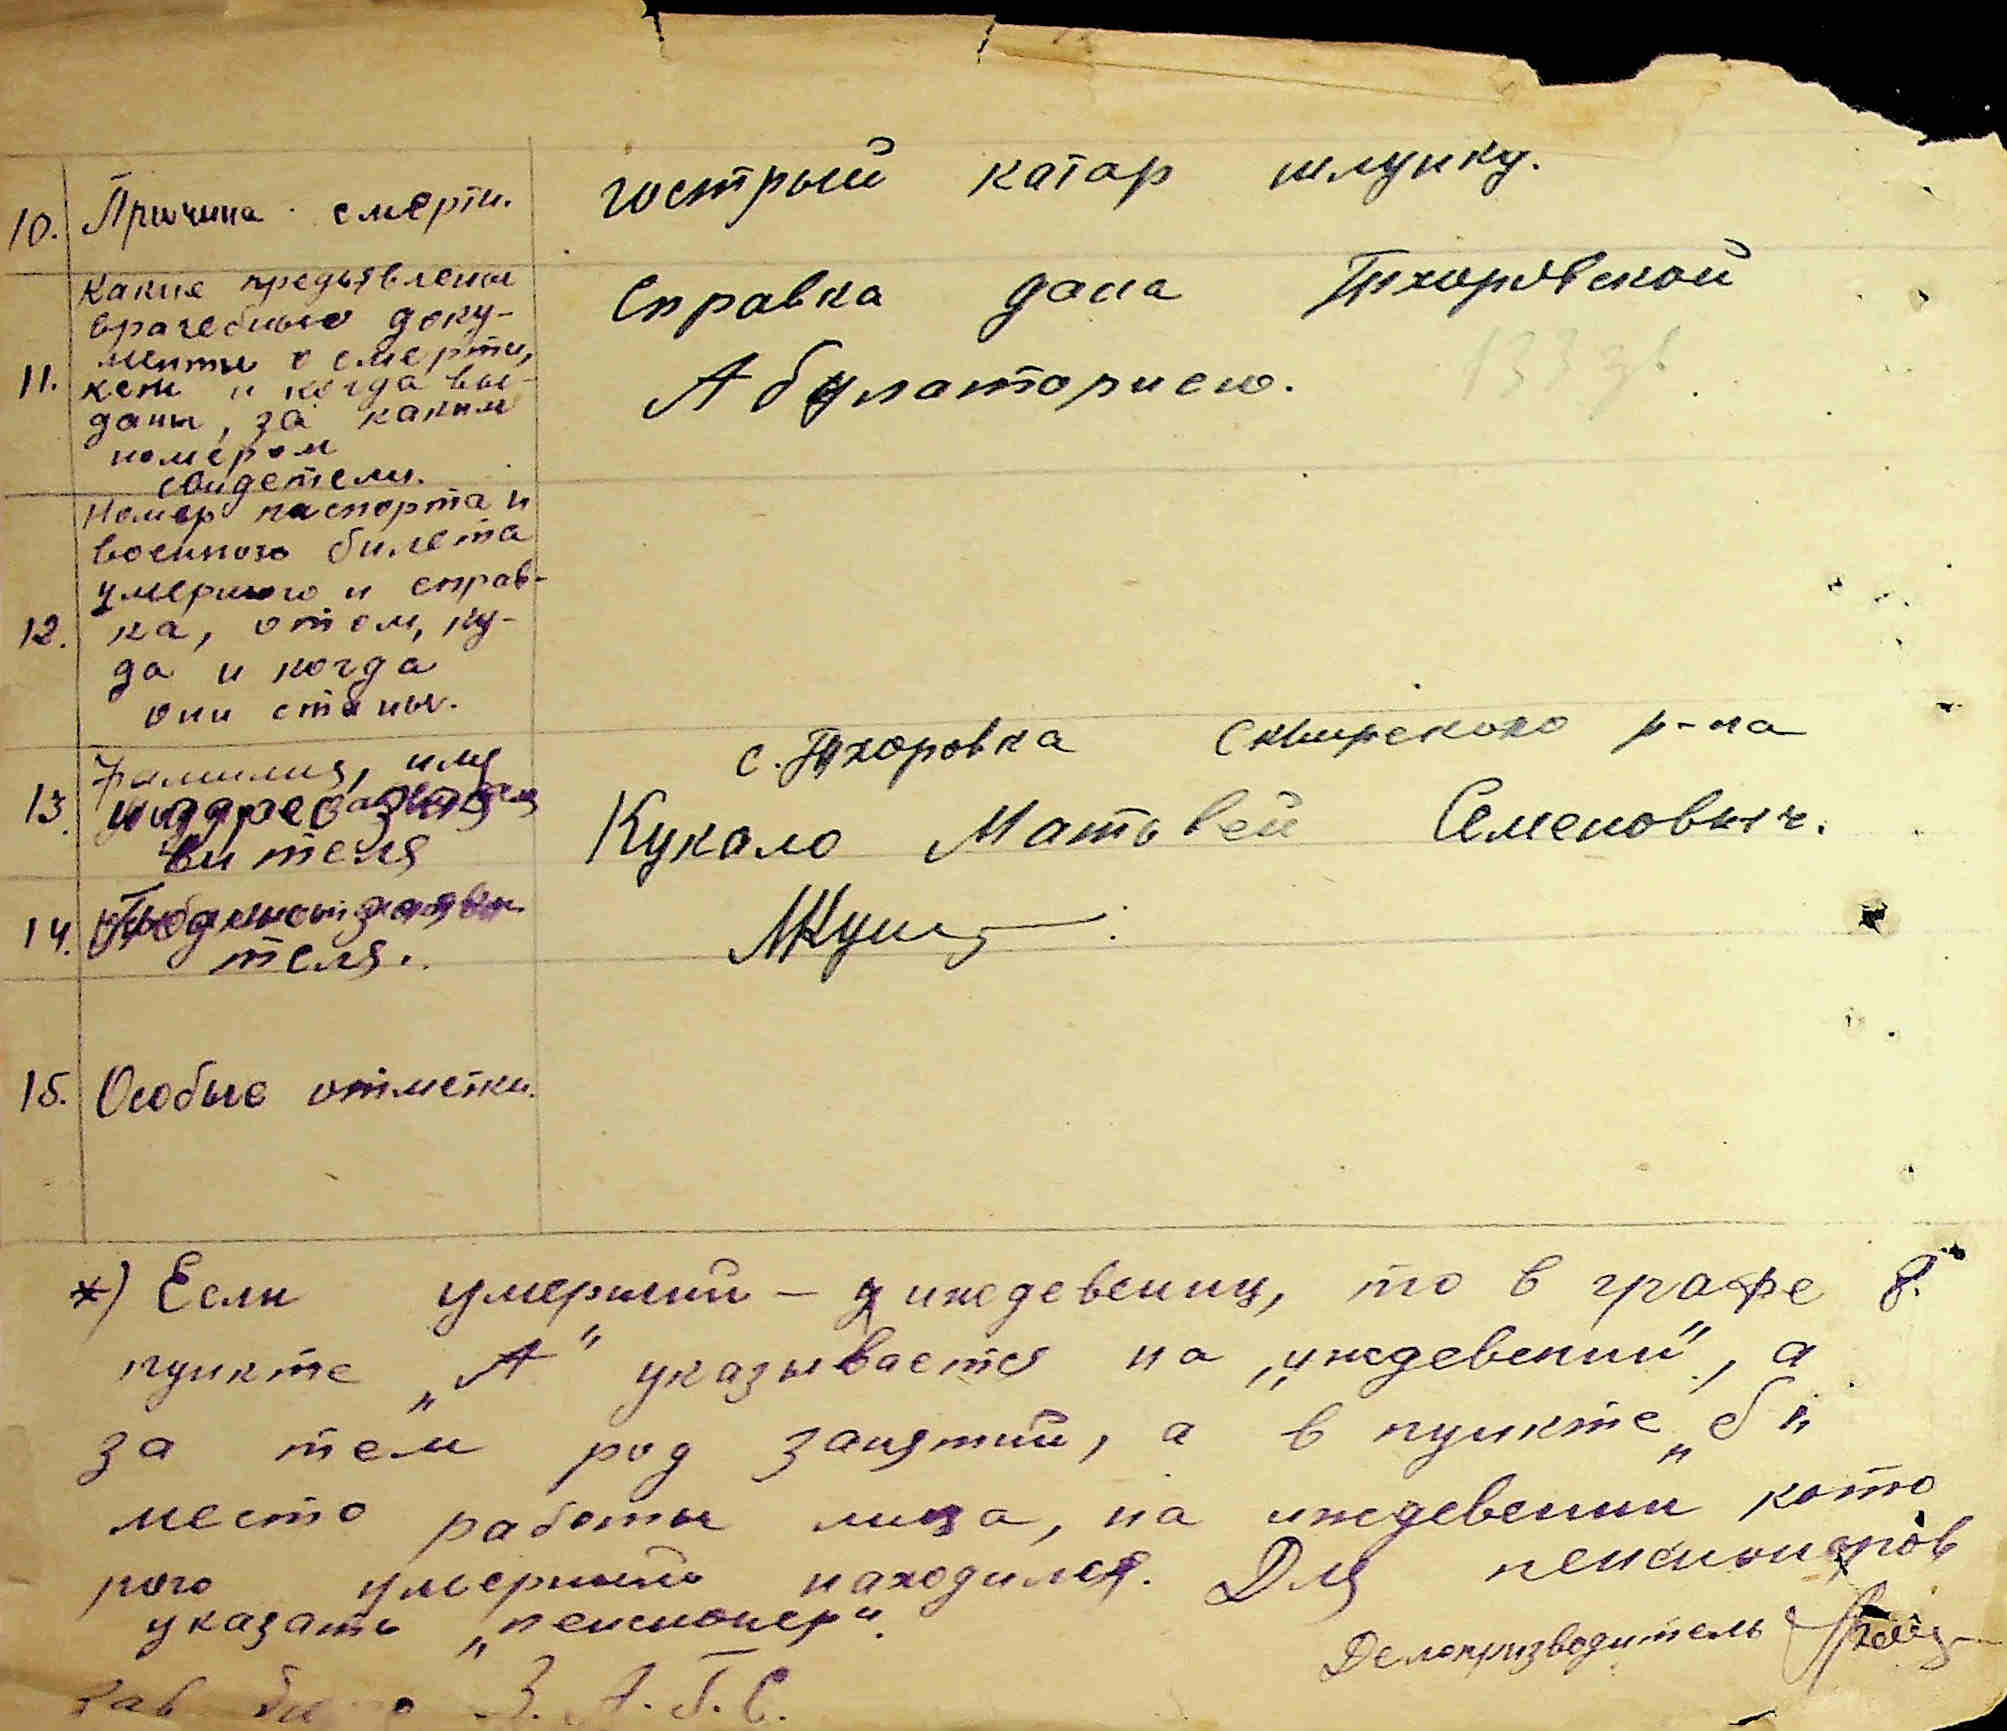 10. Причина смерти.
гострый катар шлунку.
11. Какие предъявлены
врачебные доку-
менты о смерти,
кем и когда вы-
даны, за каким
номером
свидетели.
Справка дана Тхоровской
Абулаториею.
12. Номер паспорта и
военного билета
умершого и справ-
ка, о том, ку-
да и когда
они сданы.
13. Фамилия, имя
и адрес заяв
вителя
с. Тхоровка Сквирского р-на
Кукало Матьвей Семеновыч.
14. Подпись заяви
теля.
МКук
15. Особые отметки.
*) Если умерший - иждевениц, то в графе 8.
пункте „А" указывается на „иждевении", а
за тем род занятий, а в пункте „б"
место работы лица, на иждевении кото
рого умерший находился. Для пенсионеров
указать „пенсионер".
Делопризводитель
Зав бюро З.А.Г.С.